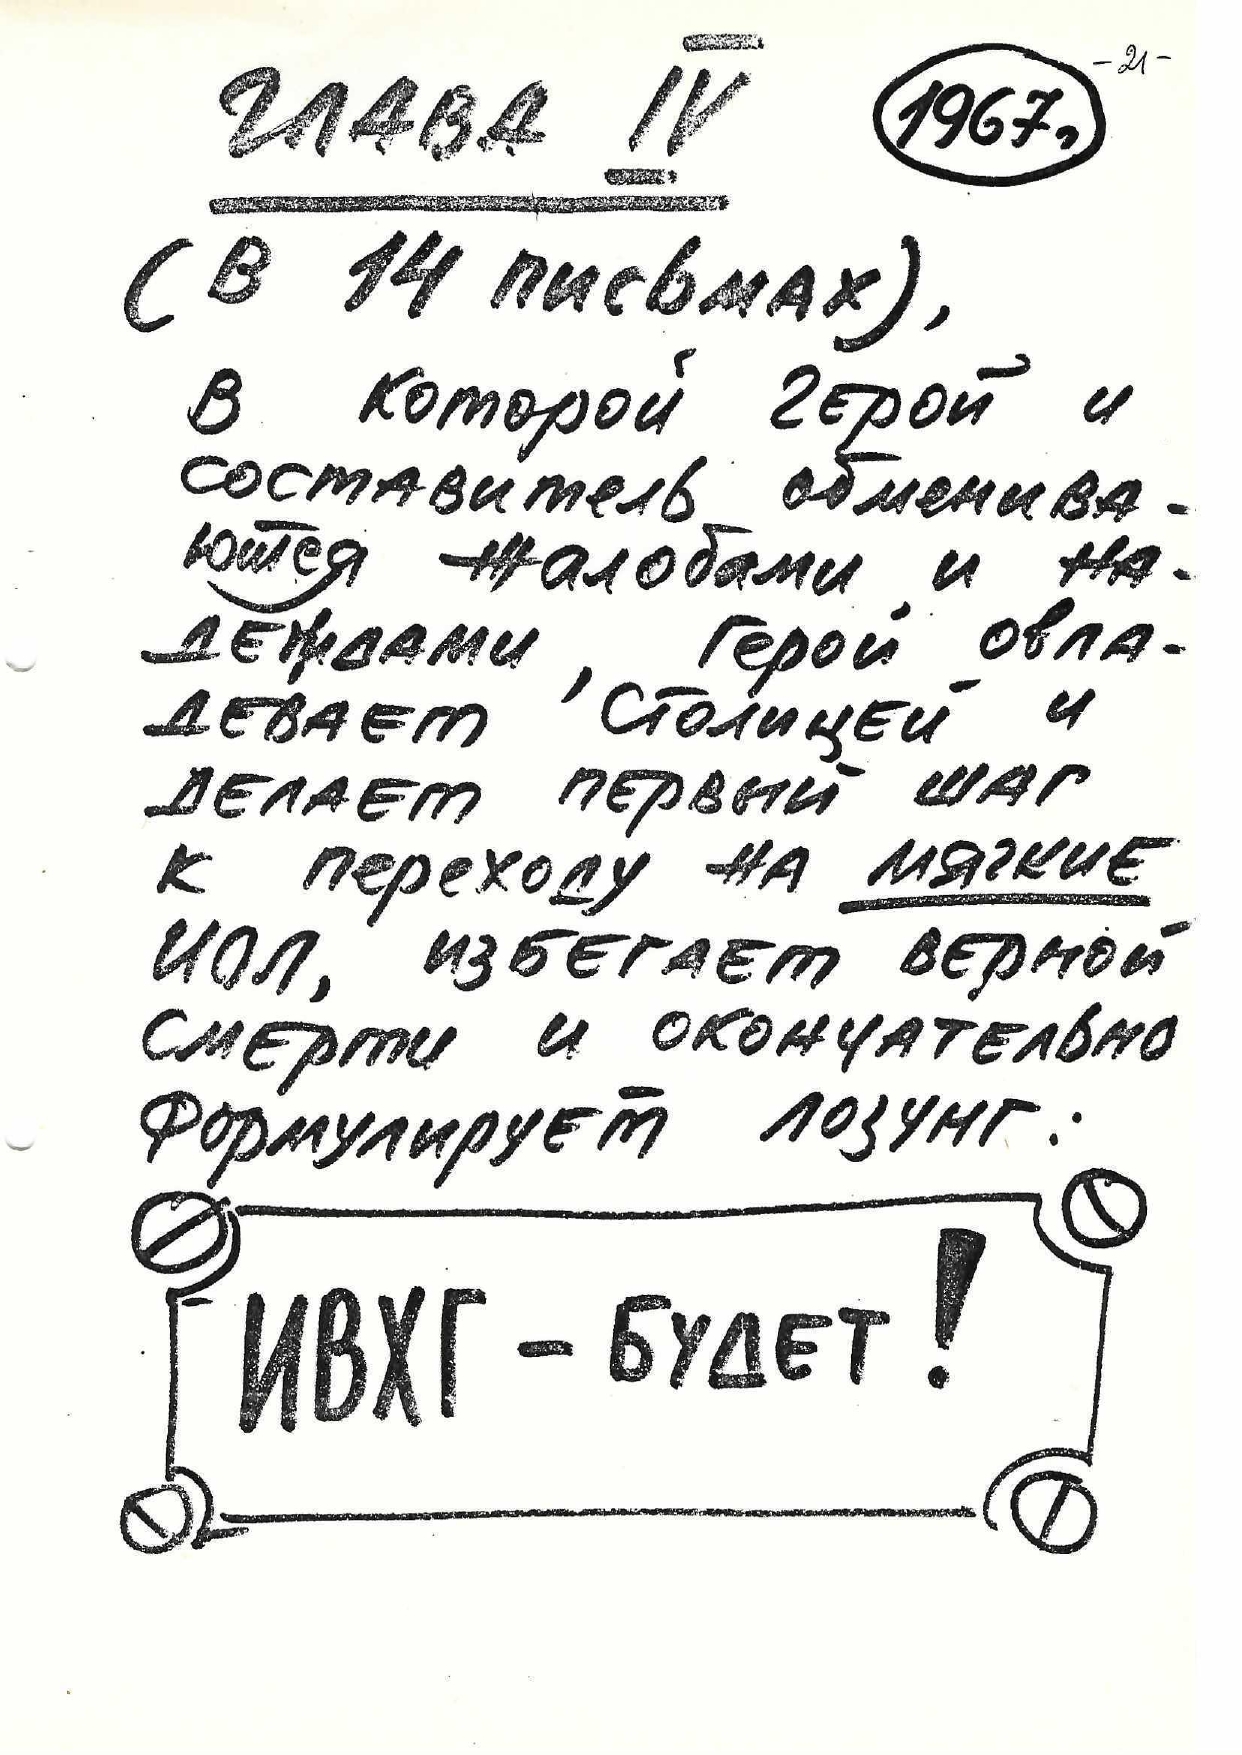 - 21 -
ГЛАВА IV
1967г.
(В 14 письмах),
В которой Герой и
составитель обменива-
ются жалобами и на-
деждами, Герой овла-
девает Столицей и
делает первый шаг
к переходу на мягкие
ИОЛ, избегает верной
смерти и окончательно
формулирует лозунг:
ИВХГ - БУДЕТ!